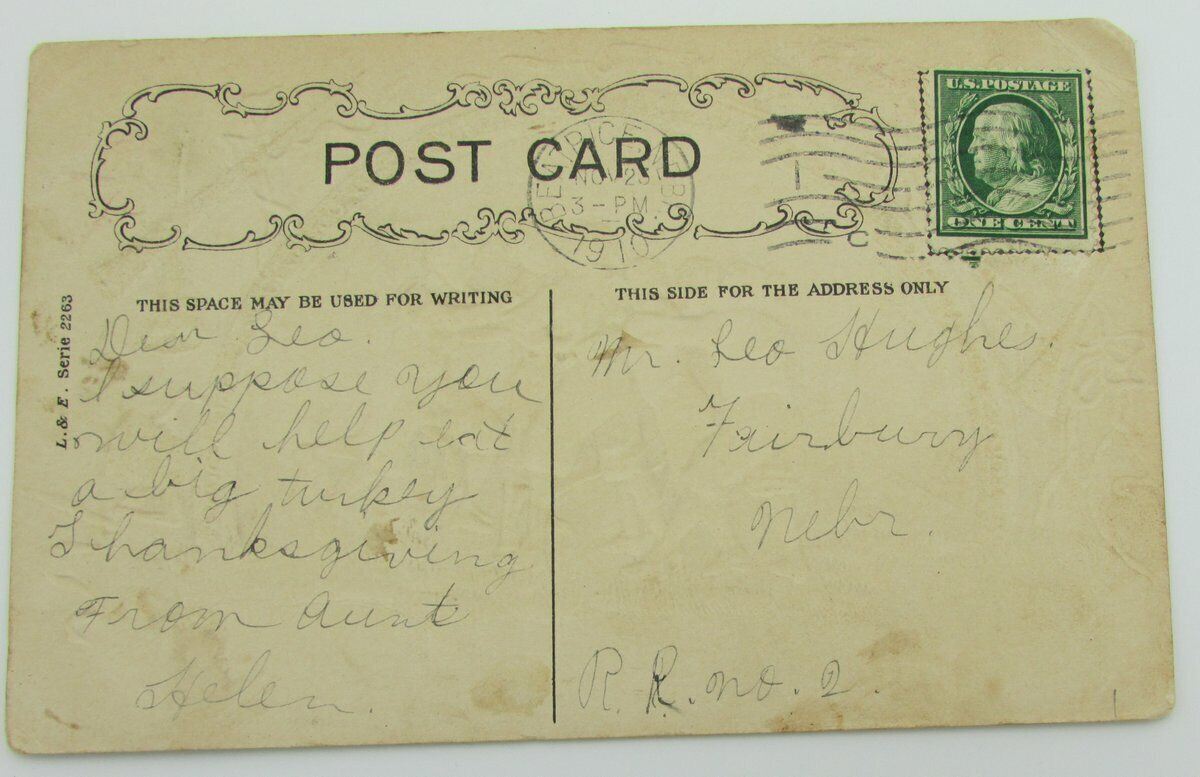 POST CARD
NOV 23
3-PM
1910
U.S. POSTAGE
ONE CENT
THIS SPACE MAY BE USED FOR WRITING
THIS SIDE FOR THE ADDRESS ONLY
L. & E. Serie 2263
Dear Leo.
I suppose you
will help eat
a big turkey
Thanksgiving
From Aunt
Helen.
Mr. Leo Hughes.
Fairbury
Nebr.
R. R. No. 2.